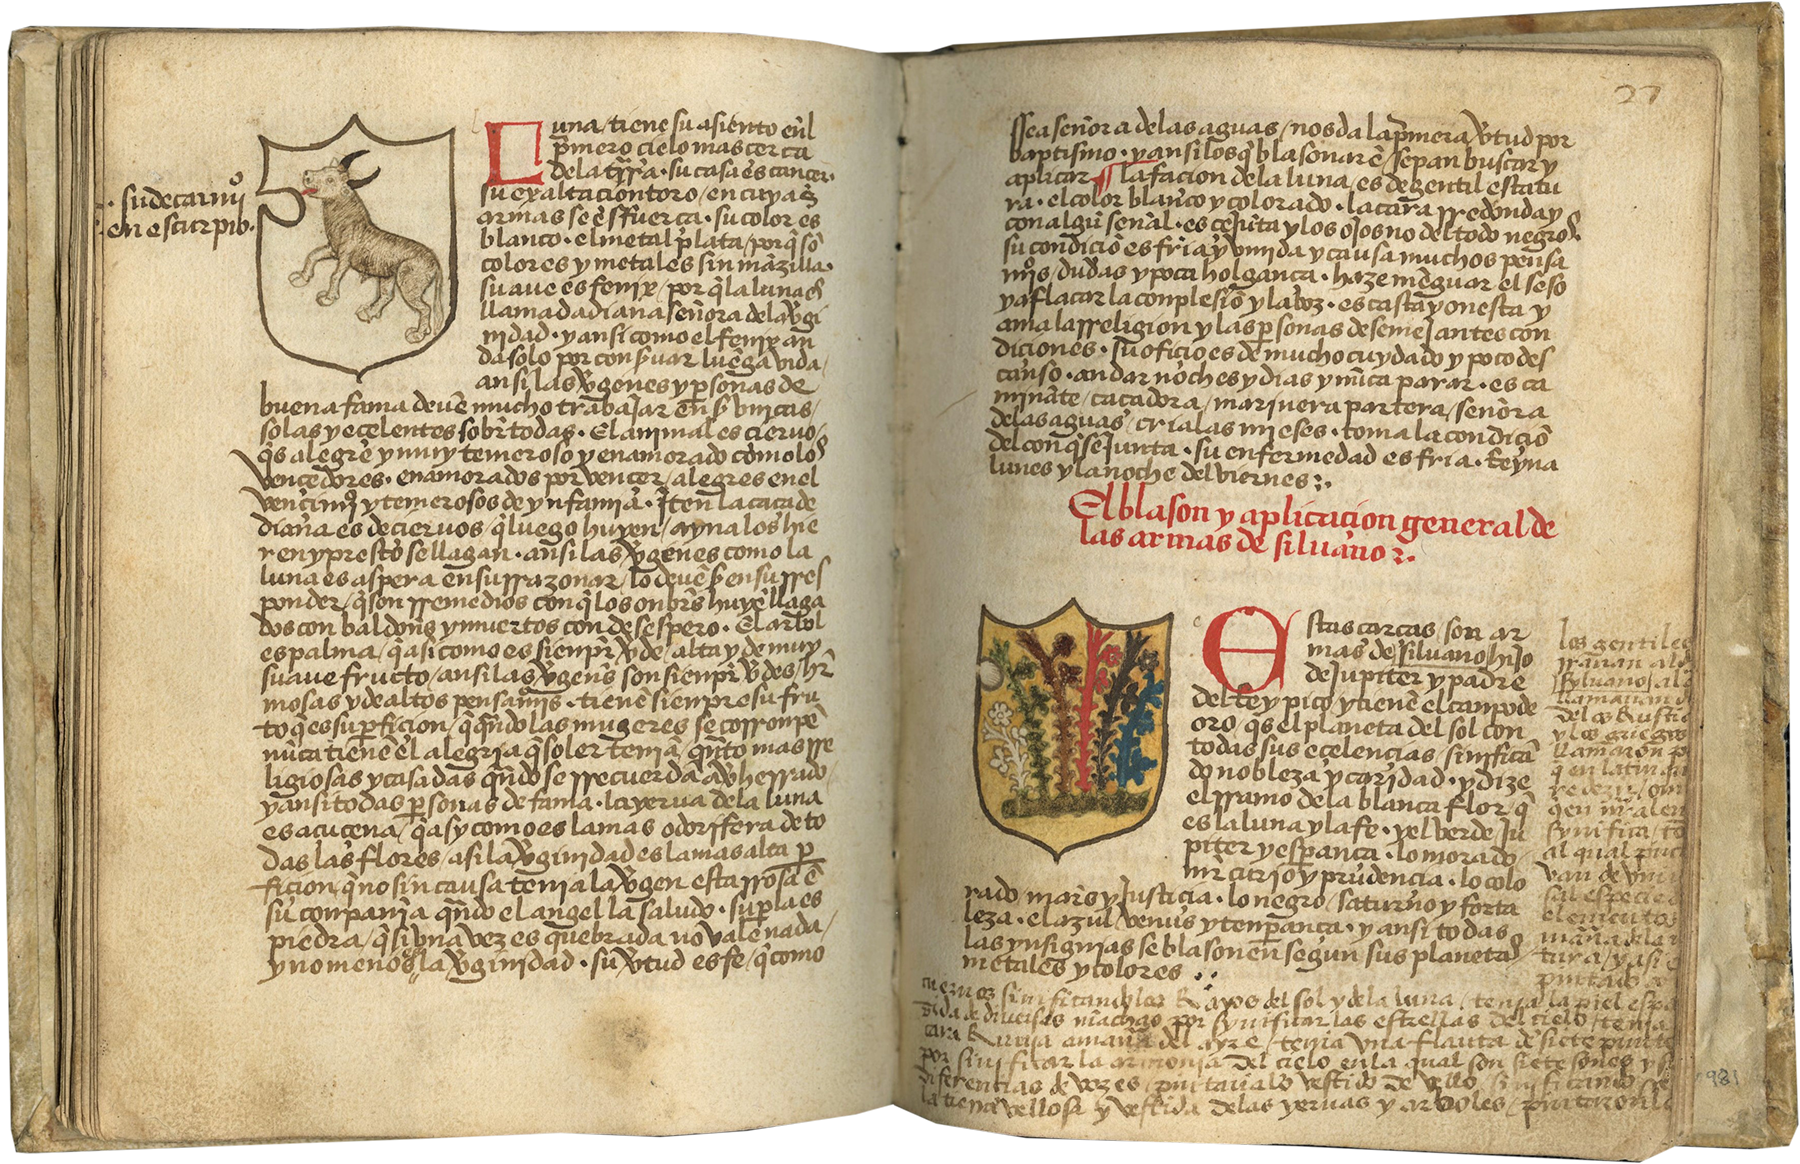 Luna / tiene su asiento en̄l
p̄mero cielo mas cerca
de la tr̄r̄a · su casa es cancer ·
su exaltacion toro / en cuyas
armas se esfuerca · su color es
blanco · el metal plata / porq̄ sō
colores y metales sin māzilla ·
su ave es fenix / por q̄ la luna es
llamada diana señora de la v̄gi
nidad · y ansi como el fenix an
da solo por conservar luēga vida /
ansi las v̄genes y p̄sonas de
buena fama devē mucho trabajar en s̄ vnicas /
solas y ecelentes sobr̄ todas · El animal es ciervo /
q̄s alegrē y muy temeroso y enamorado como los
vencedores · enamorados por vencer / alegres en el
vencimi̊ y temerosos de ynfamia · Iten la caca de
diana es de ciervos q̄ luego huyen / ayna los hie
ren y presto se llagan · ansi las v̄genes como la
luna es aspera en su rrazonar / lo devē s̄ en su rres
ponder / q̄ son rremedios con q̄ los onbrs̄ huyē llaga
dos con baldons̄ y muertos con desespero · El arbol
es palma / q̄ asi como es sienpr̄ v̄de / alta y de muy
suave fructo / ansi las v̄gens̄ son sienpr̄ v̄des / hr̄
mosas y de altos pensamis̊ · tienē sienpre su fru
to q̄ es su p̄ficion / q̄ qn̄do las mugeres se corronpē
nūca tienē el alegria q̄ soler teniā qn̄to mas rre
ligiosas y casadas qn̄do se rrecuerda
y ansi todas p̄sonas de fama · la yerva de la luna
es acucena / q̄ asy como es la mas odorifera de to
das las flores / asi la v̄ginidad es la mas alta p̄
ficion q̄ no sin causa tenia la v̄gen esta rrosa ē
su conpania qn̄do el angel la saludo · su p̄la es
piedra / q̄ si vna vez es quebrada no vale nada /
y no menos la v̄ginidad · su v̄tud es fe / q̄ como
· su decaimi̊
en escurpio ·
27
ssea señora de las aguas / nos da la p̄mera v̄tud por
baptismo · y ansi los q̄ blasonarē / sepan buscar y
aplicar ¶ la facion de la luna / es de gentil estatu
ra · el color blanco y colorado · la cara rredonda y
con algū señal · es cejūta y los ojos no del todo negros ·
su condicio es fria y vmida y causa muchos pensa
mis̊ / dudas y poca holganca · haze mēguar el seso
y aflacar la conplesiō y la boz · es casta y onesta y
ama la rreligion y las p̄sonas de semejantes con
diciones · su oficio es de mucho cuydado y poco des
canso · andar noches y dias y nūca parar · es ca
mināte / cacadora / marinera partera / señora
de las aguas / cria las mieses · toma la condiciō
del con q̄ se junta · su enfermedad es fria · Reyna
lunes y la noche del viernes :·
El blason y aplicacion general de
las armas de silvano :·
Estas carcas / son ar
mas de silvano hijo
de Jupiter y padre
del rey pico y tienē el campo de
oro / q̄s el planeta del sol con
todas sus ecelencias / sinificā
do nobleza y caridad · y dize
el rramo de la blanca flor / q̄
es la luna y la fe · y el verde Ju
piter y esperanca · lo morado
m̄curio y prudencia · lo colo
rado mars̄ y justicia · lo negro / saturno y forta
leza · el azul venus y tenp̄anca · y ansi todas
las ynsignias se blasonen segun sus planetas
metales y colores :·
los gentiles
silvano
llamavan
del
y los griegos
llamaron p
q̄ en latin
re dezir /
sinifica / to
al qual pinta
van de
elementos
tura / y asi
pintado
cuernos sinificando los Rayos del sol y de la luna / tenia la piel
de diversas māchas por synificar las estrellas del cielo / tenia
cara Ruvia a maña del ayre / tenia vna flauta de siete
por sinificar la armonia del cielo en la qual son siete sones y
diferentias de vozes / pintavalo vestido de vello / sinificando
la tierra vellosa y vestida de las yervas y arboles /
981